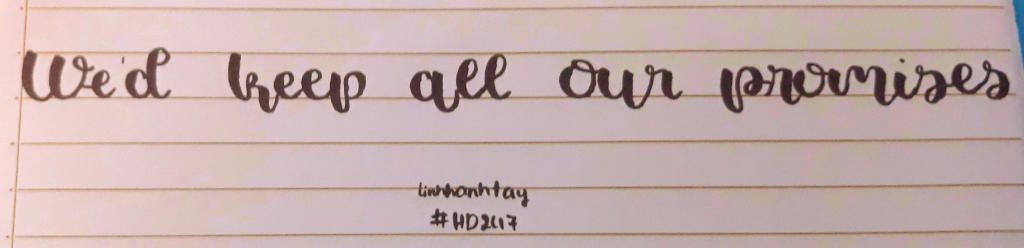 We'd keep all our promises
linhhanhtay
#HD2617